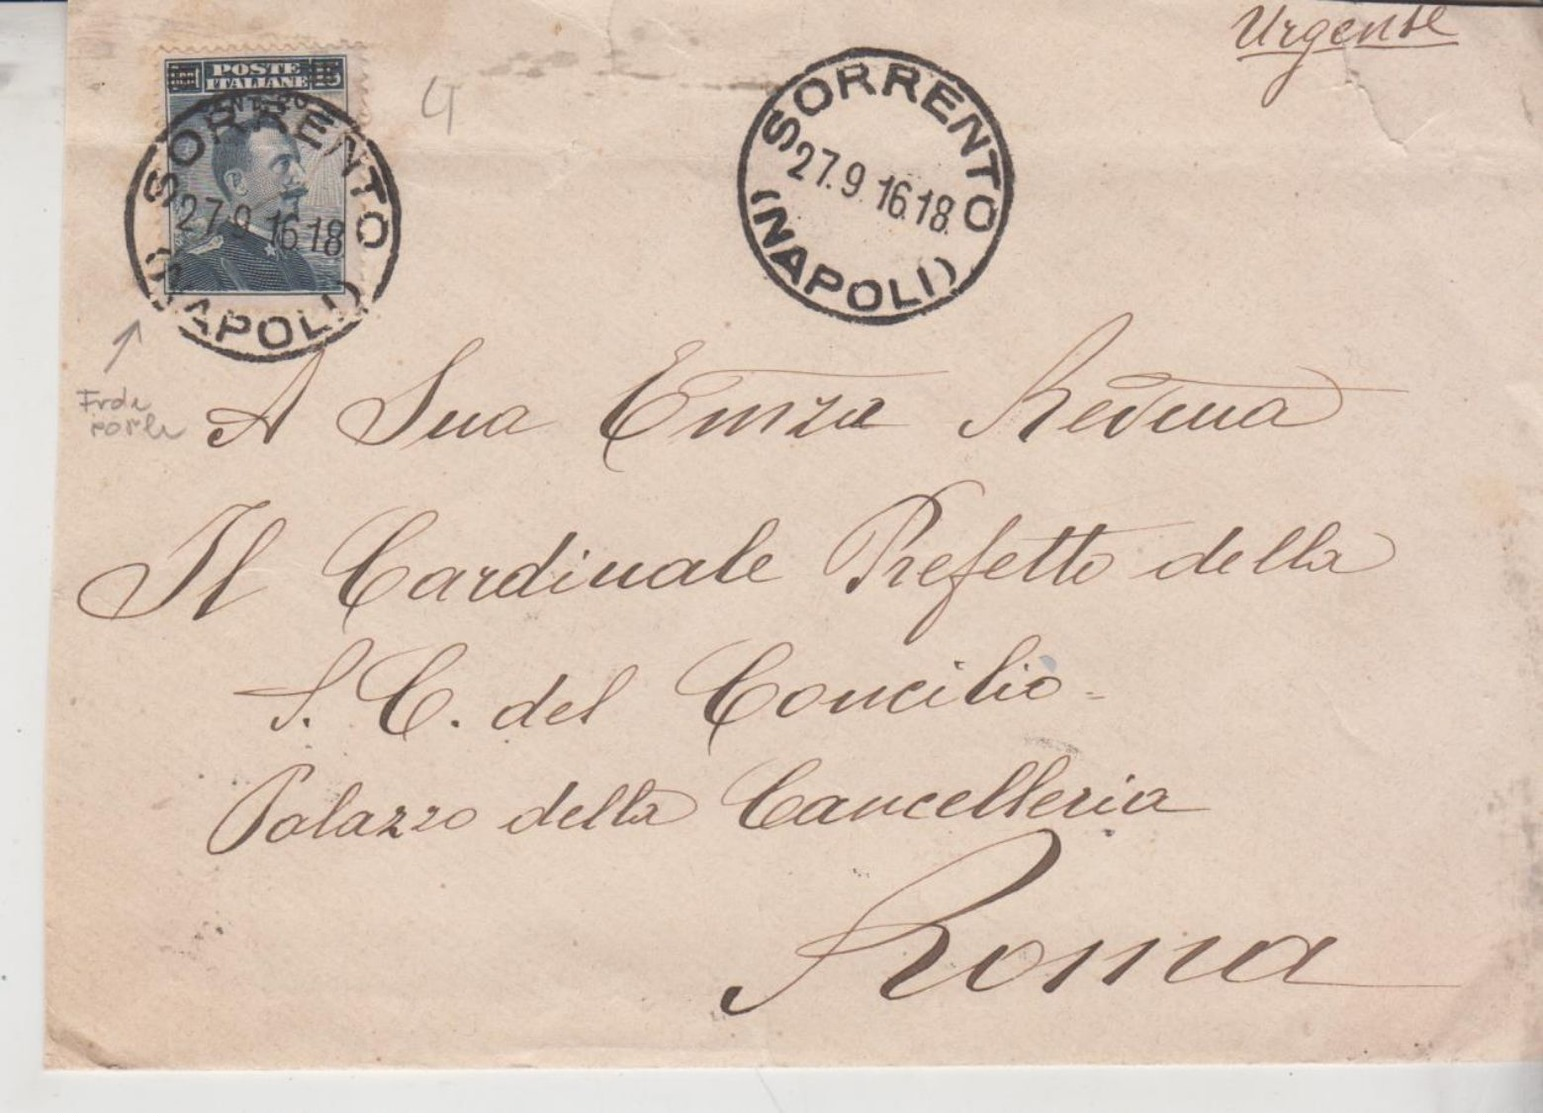 Urgente
POSTE
ITALIANE
SORRENTO
27.9 16.18
(NAPOLI)
4
SORRENTO
27.9 16.18
(NAPOLI)
A Sua Emza Revma
Il Cardinale Prefetto della
S. C. del Concilio
Palazzo della Cancelleria
Roma